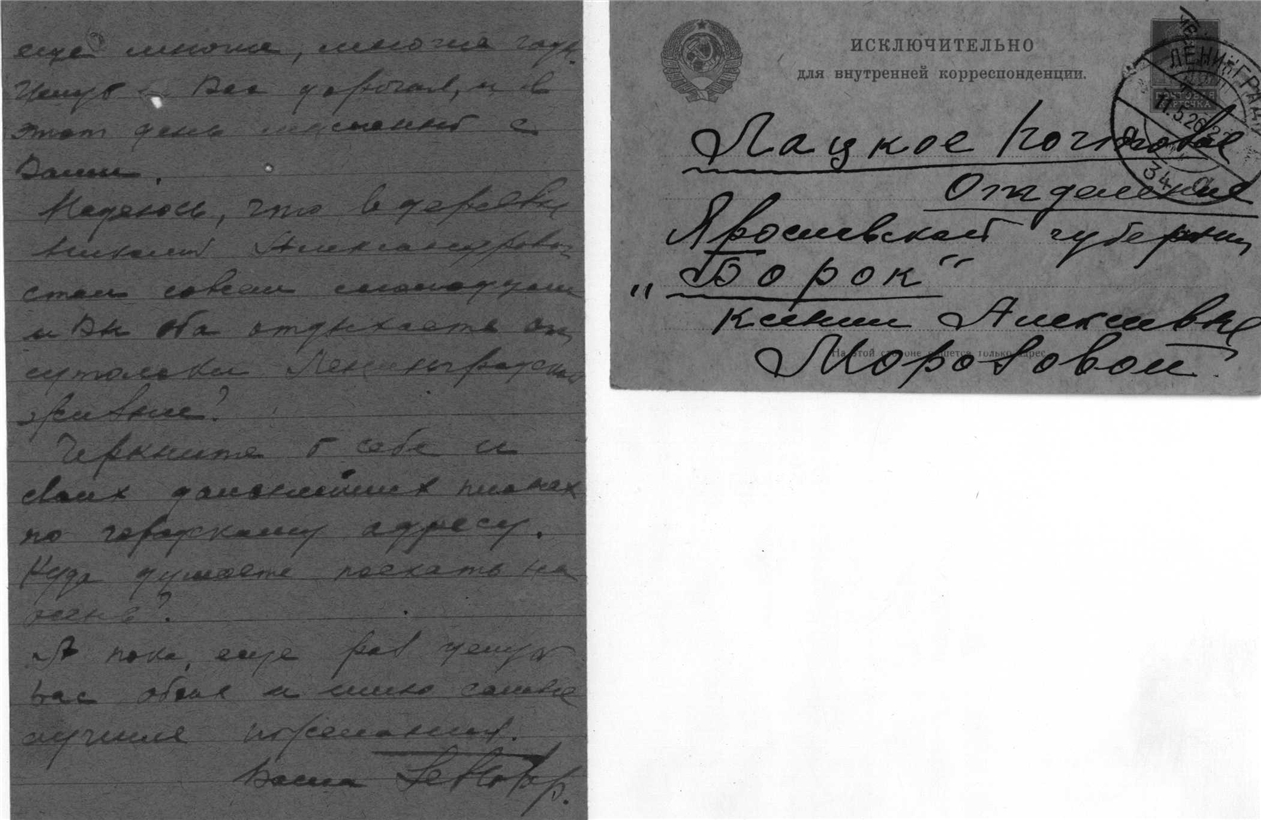 еще многие, многие годы.
Целую Вас дорогая, и в
этот день мысленно с
Вами.
Надеюсь, что в деревне
с Николаем Александрови-
чем совсем
и Вы оба отдыхаете от
сутолоки Ленинградской
жизни?
Черкните о себе и
своих дальнейших планах
по городскому адресу.
Куда думаете поехать на
А пока, еще раз целую
вас обоих и шлю самые
лучшие пожелания.
Ваша
ИСКЛЮЧИТЕЛЬНО
для внутренней корреспонденции.
ЛЕНИНГРАД
11.5.26
Лацкое Почтовое
Отделение
Ярославской губернии
„Борок“
Ксении Алексеевне
На этой стороне пишется только адрес
Морозовой